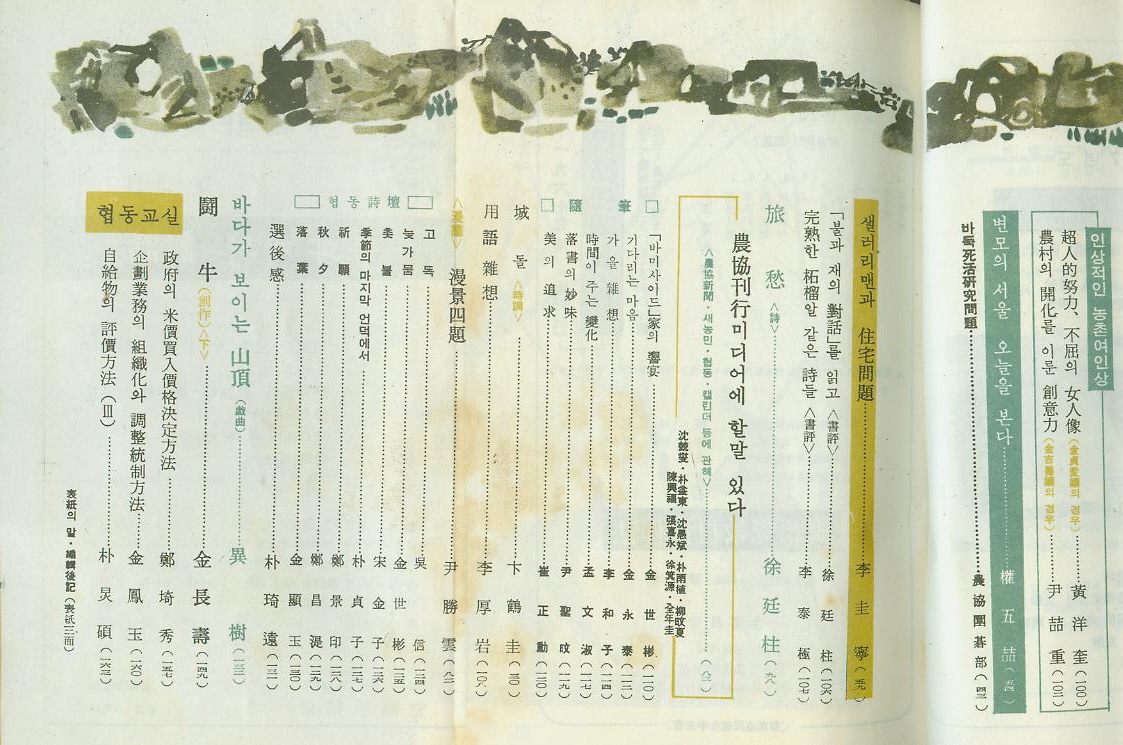 인상적인 농촌여인상
超人的努力、不屈의 女人像 (金貞愛孃의 경우) 黃洋奎 (一〇〇)
農村의 開化를 이룬 創意力 尹喆重 (一〇二)
변모의 서울 오늘을 본다 權五喆
바둑死活硏究問題 農協圍碁部 (四三)
샐러리맨과 住宅問題 李圭寧
「불과 재의 對話」를 읽고 <書評> 徐廷柱 (一〇六)
完熟한 柘榴알 같은 詩들 <書評> 李泰極 (一〇七)
旅愁 <詩> 徐廷柱 (九八)
農協刊行미디어에 할말 있다
<農協新聞・새농민・협동・캘린더 등에 관해> (八二)
朴雨植・柳旼夏
陳興福・張喜永・徐箕源・全年圭
□ 隨筆 □
「바미사이드」家의 饗宴 金世彬 (一一〇)
기다리는 마음 金永泰 (一一二)
가을 雜想 李和子 (一一四)
時間이 주는 變化 孟文淑 (一一七)
落書의 妙味 尹聖旼 (一一九)
美의 追求 崔正勳 (一二〇)
城돌 <時調> 卞鶴圭 (三〇)
用語雜想 李厚岩 (一〇八)
<漫畵> 漫景四題 尹勝雲 (八一)
□ 협동詩壇 □
고독 吳信 (一二四)
늦가뭄 金世彬 (一二五)
촛불 宋金子 (一二六)
季節의 마지막 언덕에서 朴貞子 (一二七)
祈願 鄭景印 (一二八)
秋夕 鄭昌湜 (一二九)
落葉 金顯玉 (一三〇)
選後感 朴琦遠 (一三一)
바다가 보이는 山頂 (戱曲) 異樹 (一三二)
鬪牛 (創作)<下> 金長壽 (一四九)
협동교실
政府의 米價買入價格決定方法 鄭埼秀 (一五七)
企劃業務의 組織化와 調整統制方法 金鳳玉 (一六〇)
自給物의 評價方法 (Ⅲ) 朴炅碩 (一六三)
表紙의 말・編輯後記 (表紙三面)